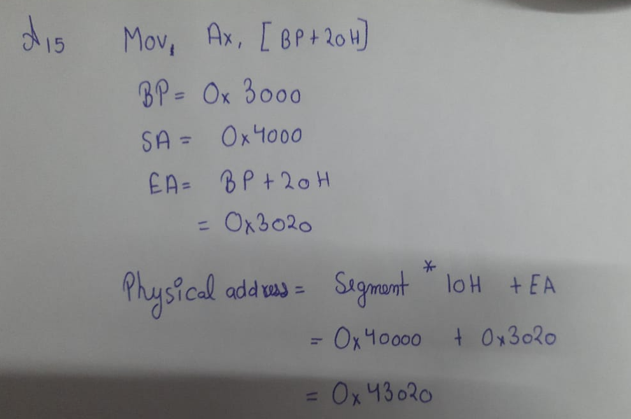 A15 Mov, Ax, [BP+20H]
BP= 0x3000
SA= 0x4000
EA= BP+20H
= 0x3020
Physical address= Segment * 10H + EA
= 0x40000 + 0x3020
= 0x43020